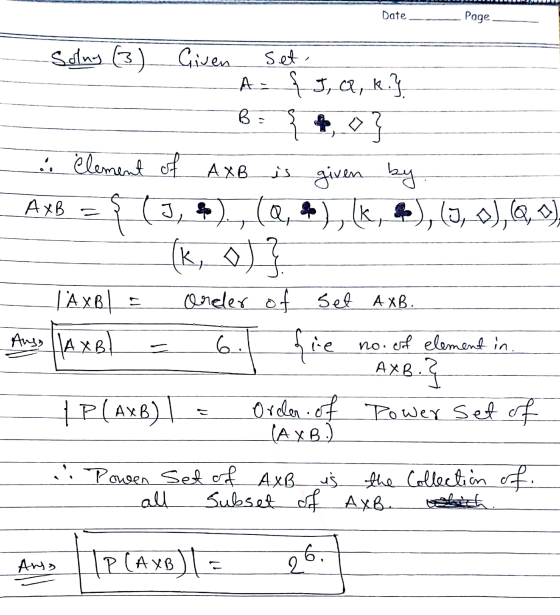 Date ______ Page ______
Solns (3) Given Set.
A = { J, Q, K.}
B = { ♣, ◇ }
∴ Element of A×B is given by
A×B = { (J, ♣)., (Q, ♣), (K, ♣), (J, ◇), (Q, ◇)
(K, ◇) }.
|A×B| = Order of Set A×B.
Ans |A×B| = 6. { i.e no. of element in.
A×B. }
|P(A×B)| = Order. of Power Set of
(A×B.)
∴ Power Set of A×B is the Collection of.
all Subset of A×B. which.
Ans |P(A×B)| = 2^6.